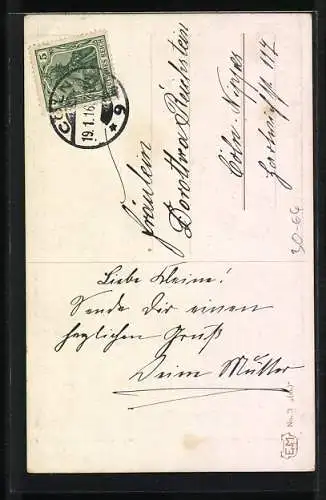 DEUTSCHES REICH
5
CÖLN
19.1.16
* 9
Fräulein
Dorothea Reichstein
Cöln-Nippes
117
30-66
Liebe Kleine!
Sende Dir einen
herzlichen Gruß
Deine Mutter
No. 3